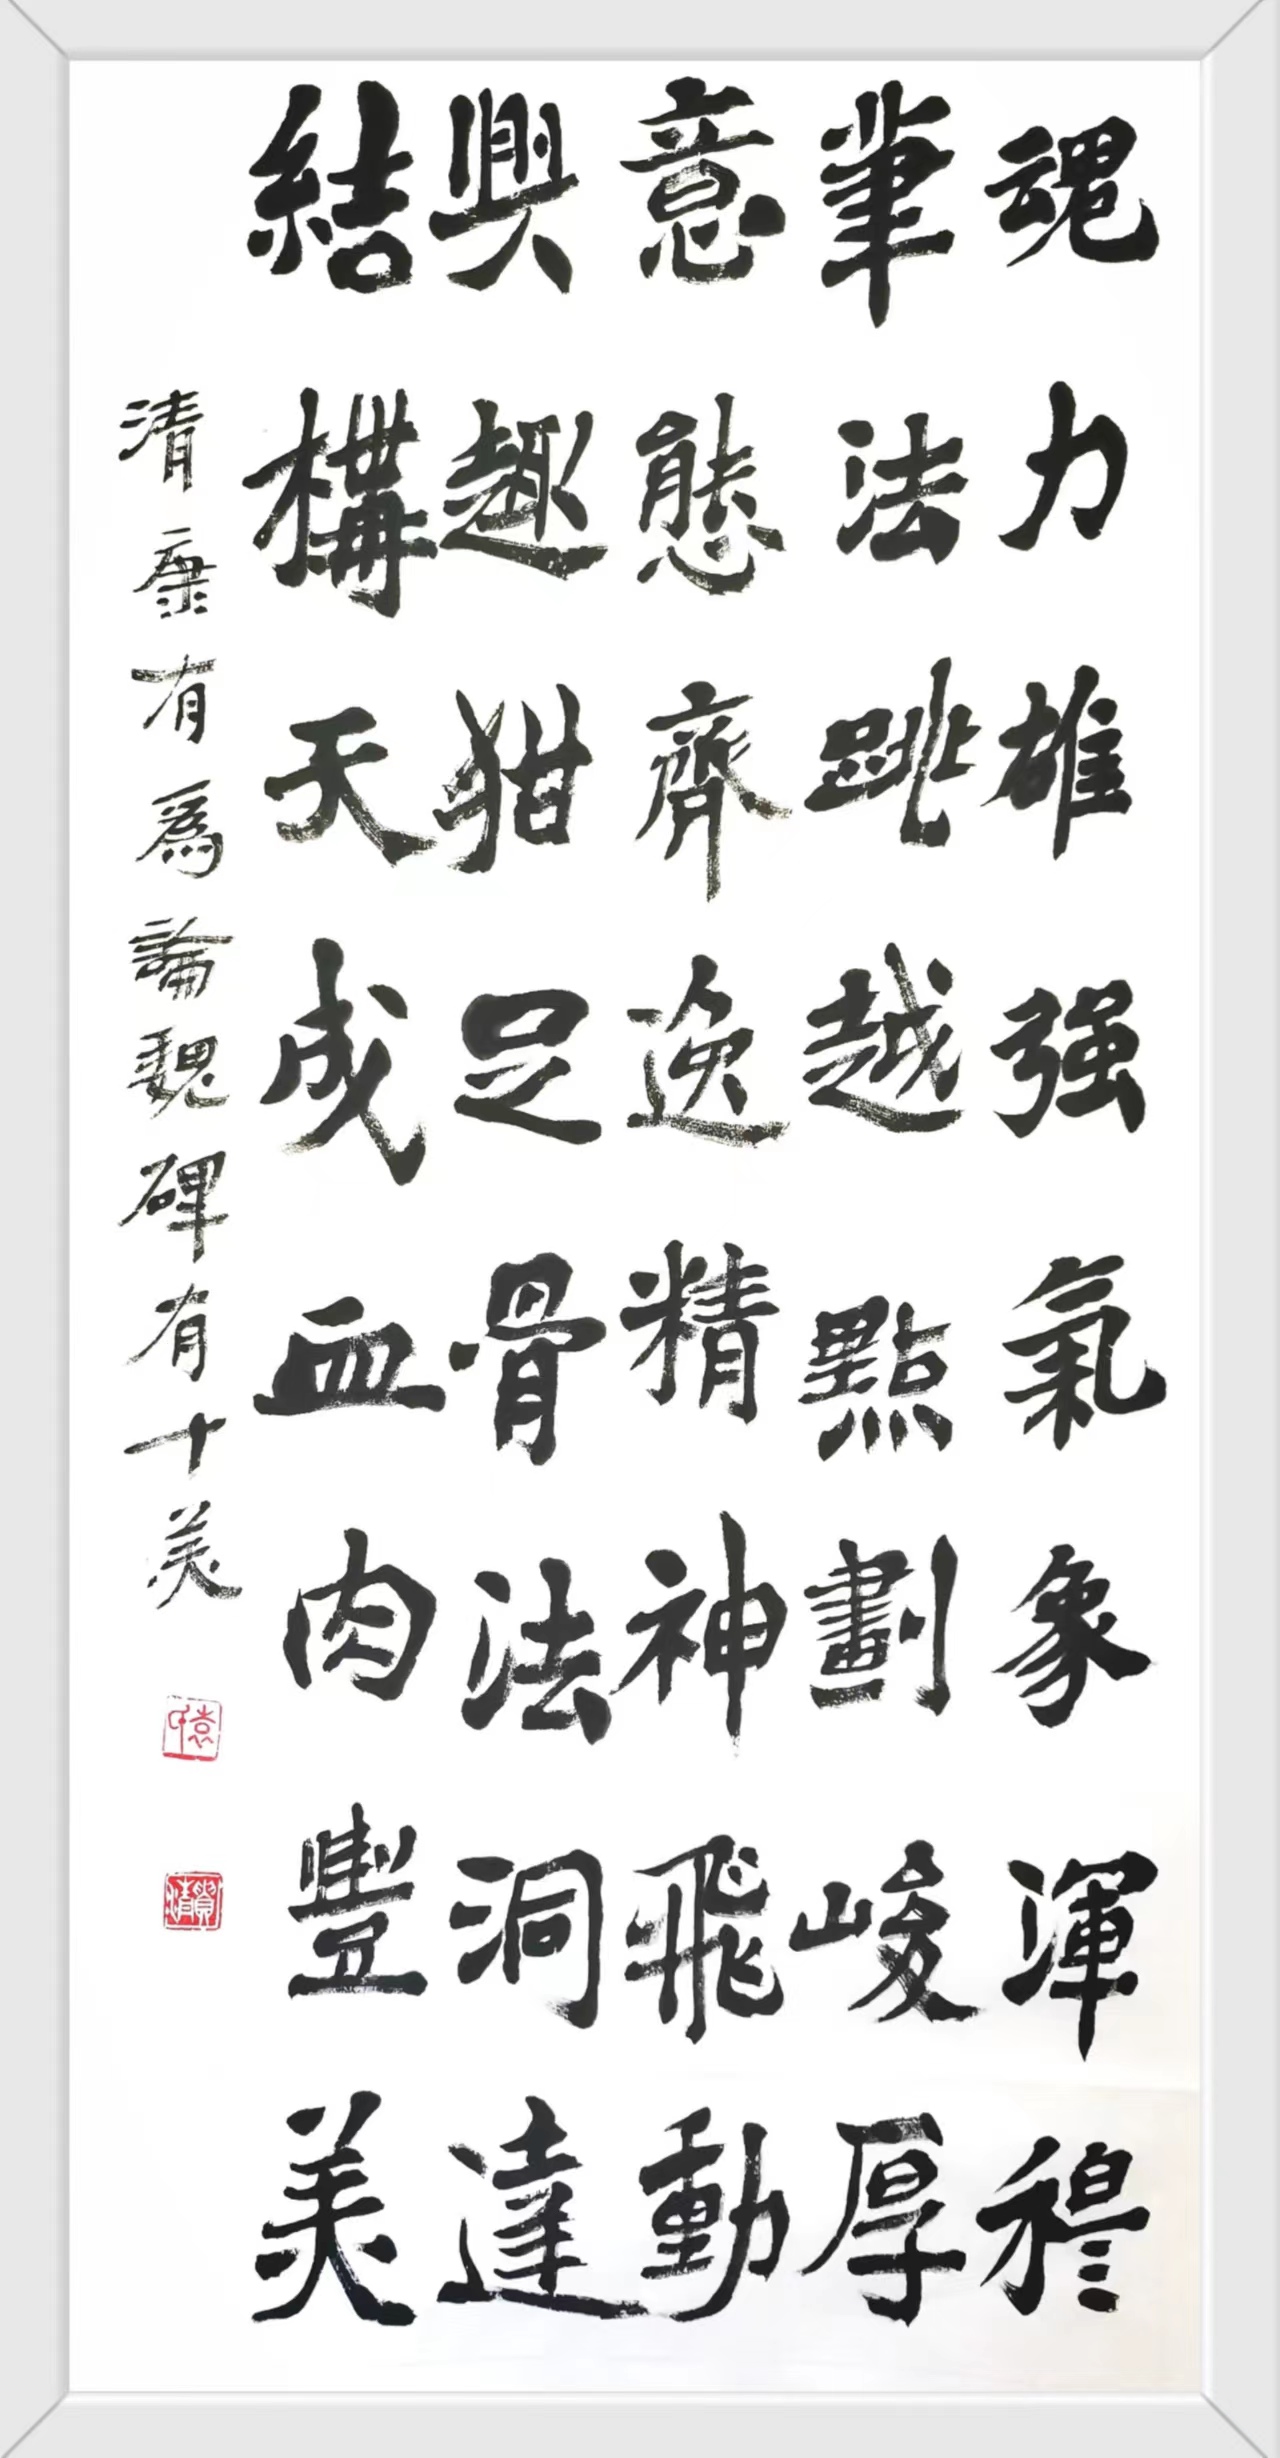 魂力雄强氣象渾穆
筆法跳越點劃峻厚
意態齊逸精神飛動
興趣酣足骨法洞達
結構天成血肉豐美
清康有爲論魏碑有十美